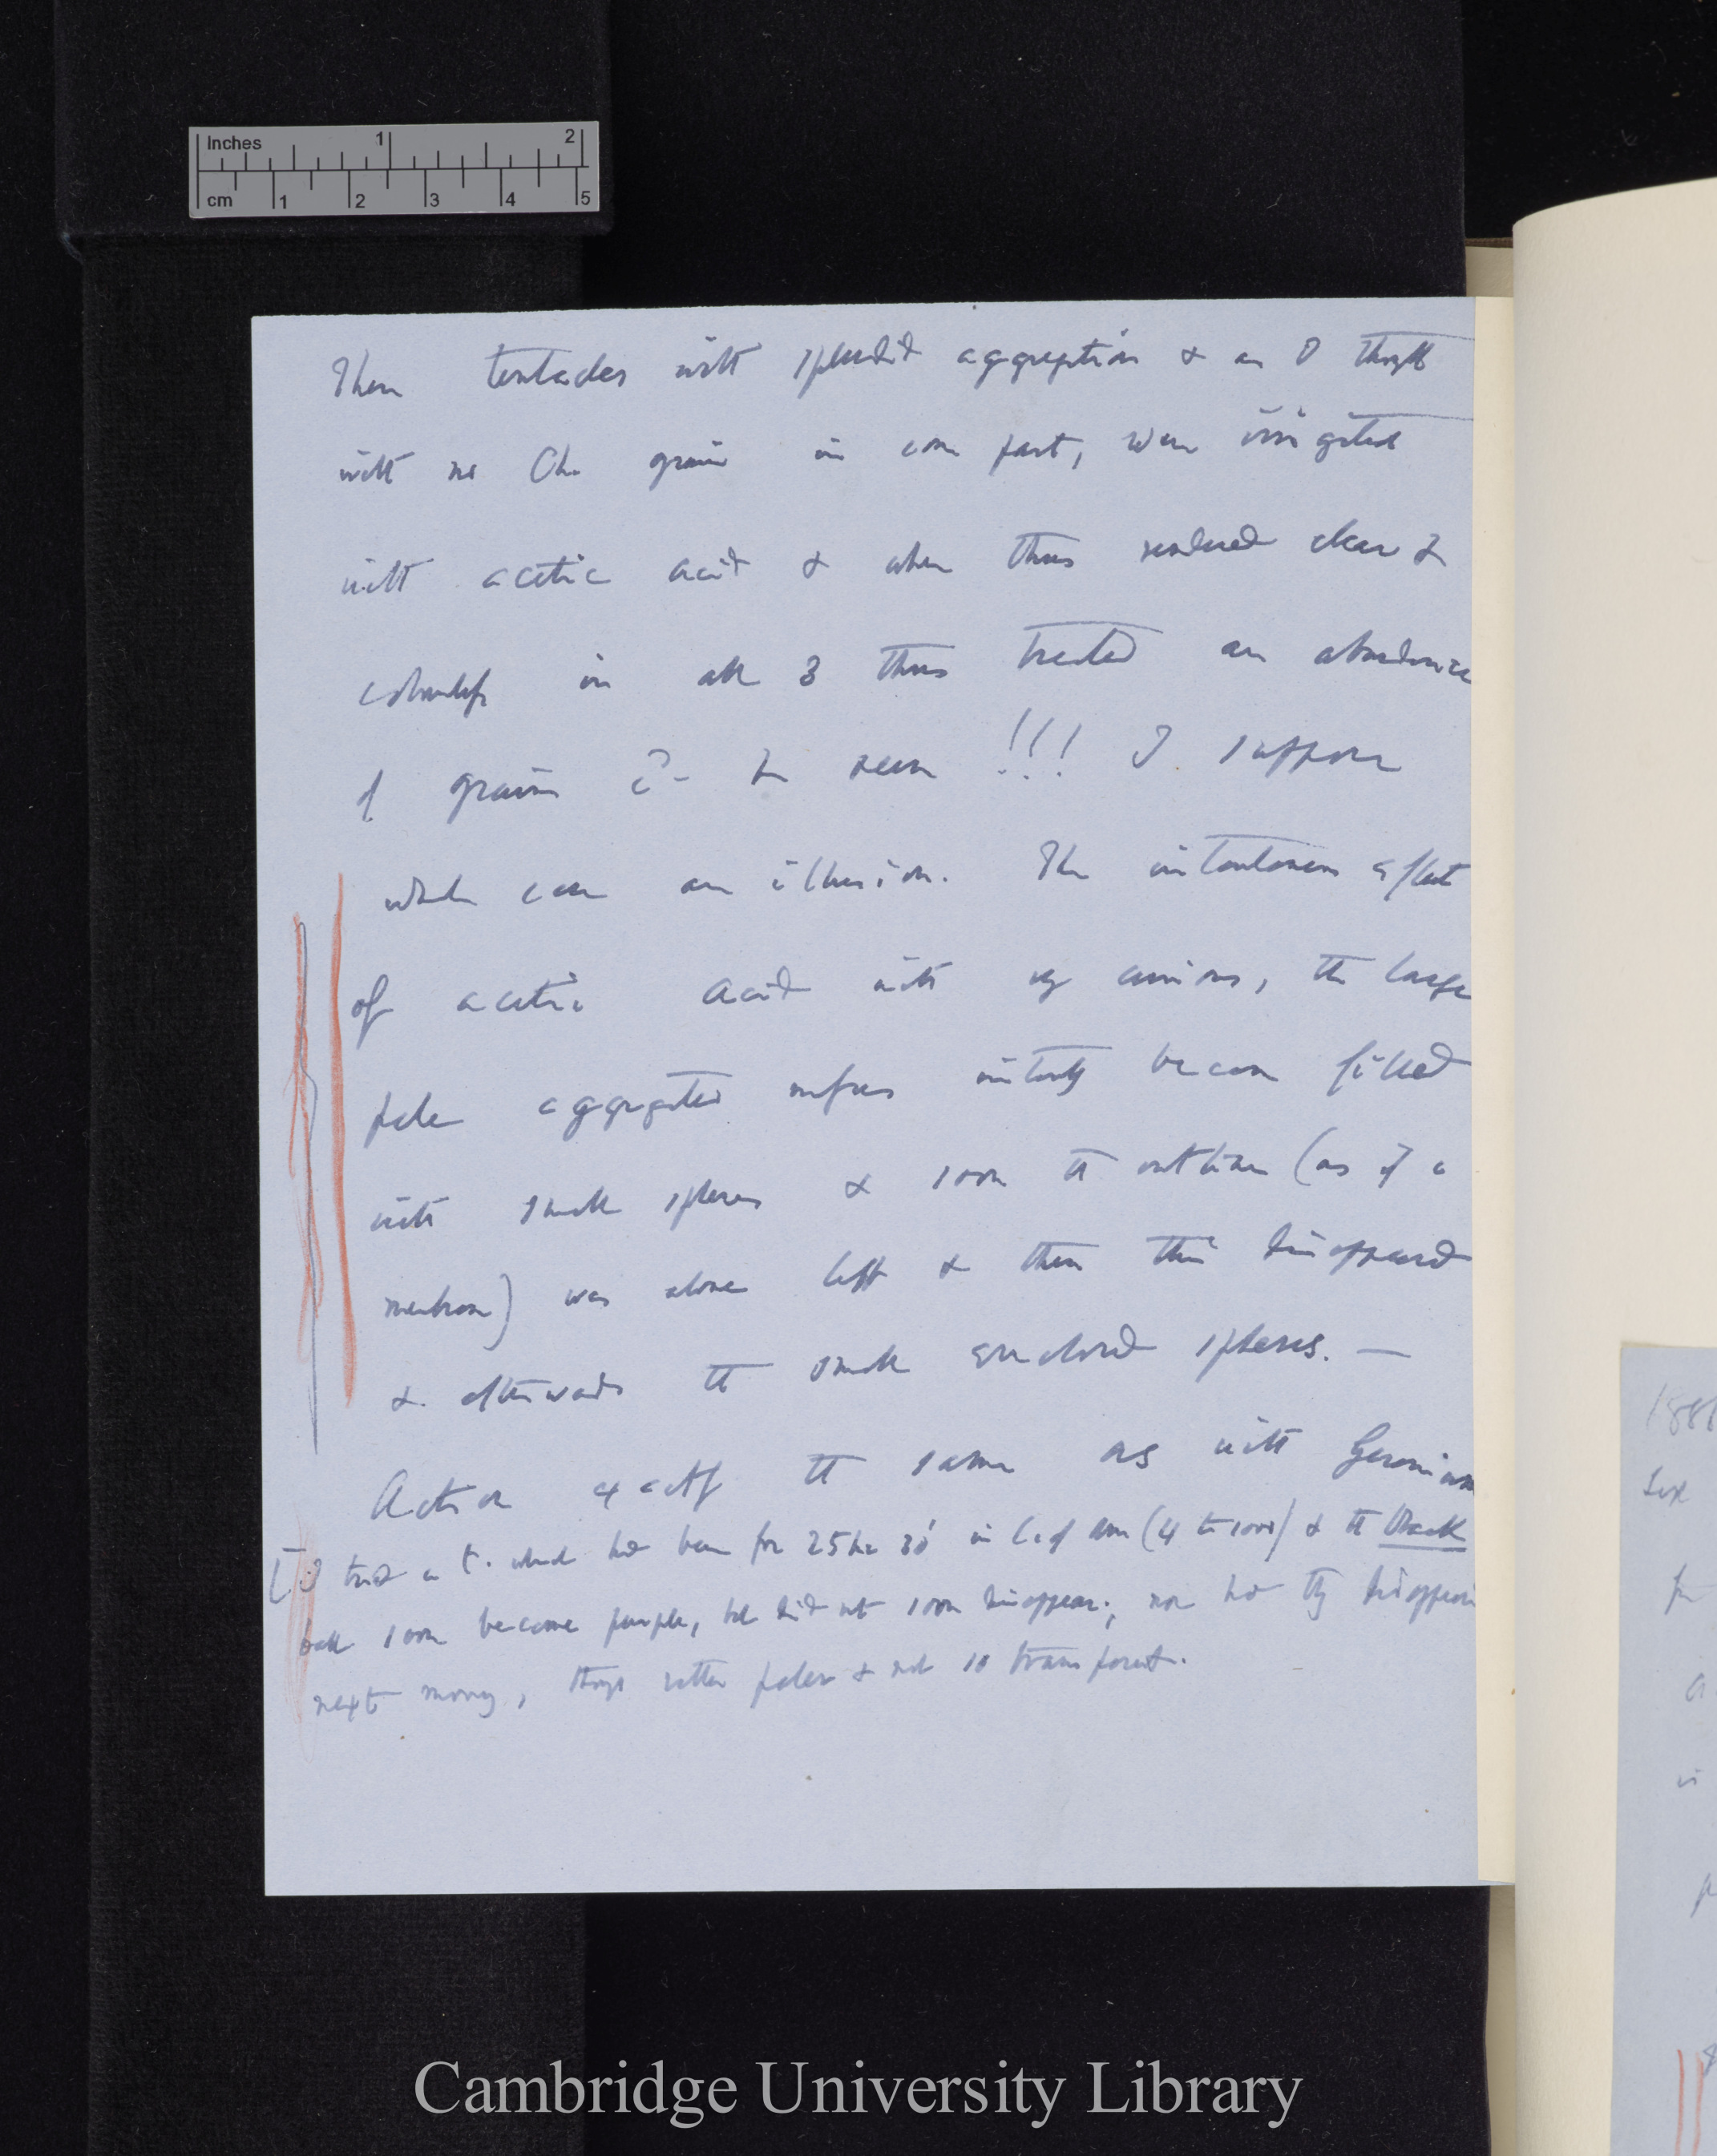 Inches 1 2
cm 1 2 3 4 5
Then tentacles with splendid aggregation & as I thought
with no Ch. grains in com part, were irrigated
with acetic acid & when thus rendered clear &
in all 3 thus treated an abundance
of grains cd. be seen !!! I suppose
which case an illusion. The instantaneous effect
of acetic acid with is curious, the large
pale aggregated masses instantly became filled
with small spheres & soon the outline (as if a
membrane) was alone left & then this disappeared
& afterwards the small enclosed spheres. —
Action exactly the same as with Geranium
[I tried a t. which had been for 25 hr 30' in C. of Am (4 to 1000) & the black
balls soon became purple, but did not soon disappear; nor had they disappeared
next morning, though rather paler & not so transparent.
1881
Cambridge University Library